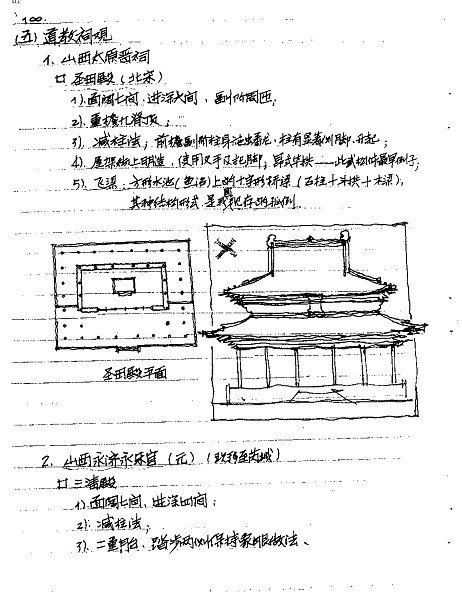 100.
(五) 道教祠观
1. 山西太原晋祠
口 圣母殿 (北宋)
1). 面阔七间, 进深六间, 副阶周匝,
2). 重檐九脊顶;
3). 减柱法, 前檐副阶柱身 , 柱有显著侧脚、升起;
4). 屋架彻上明造, 使用叉手及托脚, 异式斗拱——此式构件最早例子;
5). 飞梁: 方形水池(鱼沼)上的十字形桥梁 (石柱+斗拱+木梁),
其种结构形式, 是我国现存的孤例
圣母殿平面
2. 山西永济永乐宫 (元) (现移至芮城)
口 三清殿
1). 面阔七间, 进深四间;
2). 减柱法;
3). 二重月台、踏步两侧保持象眼做法、